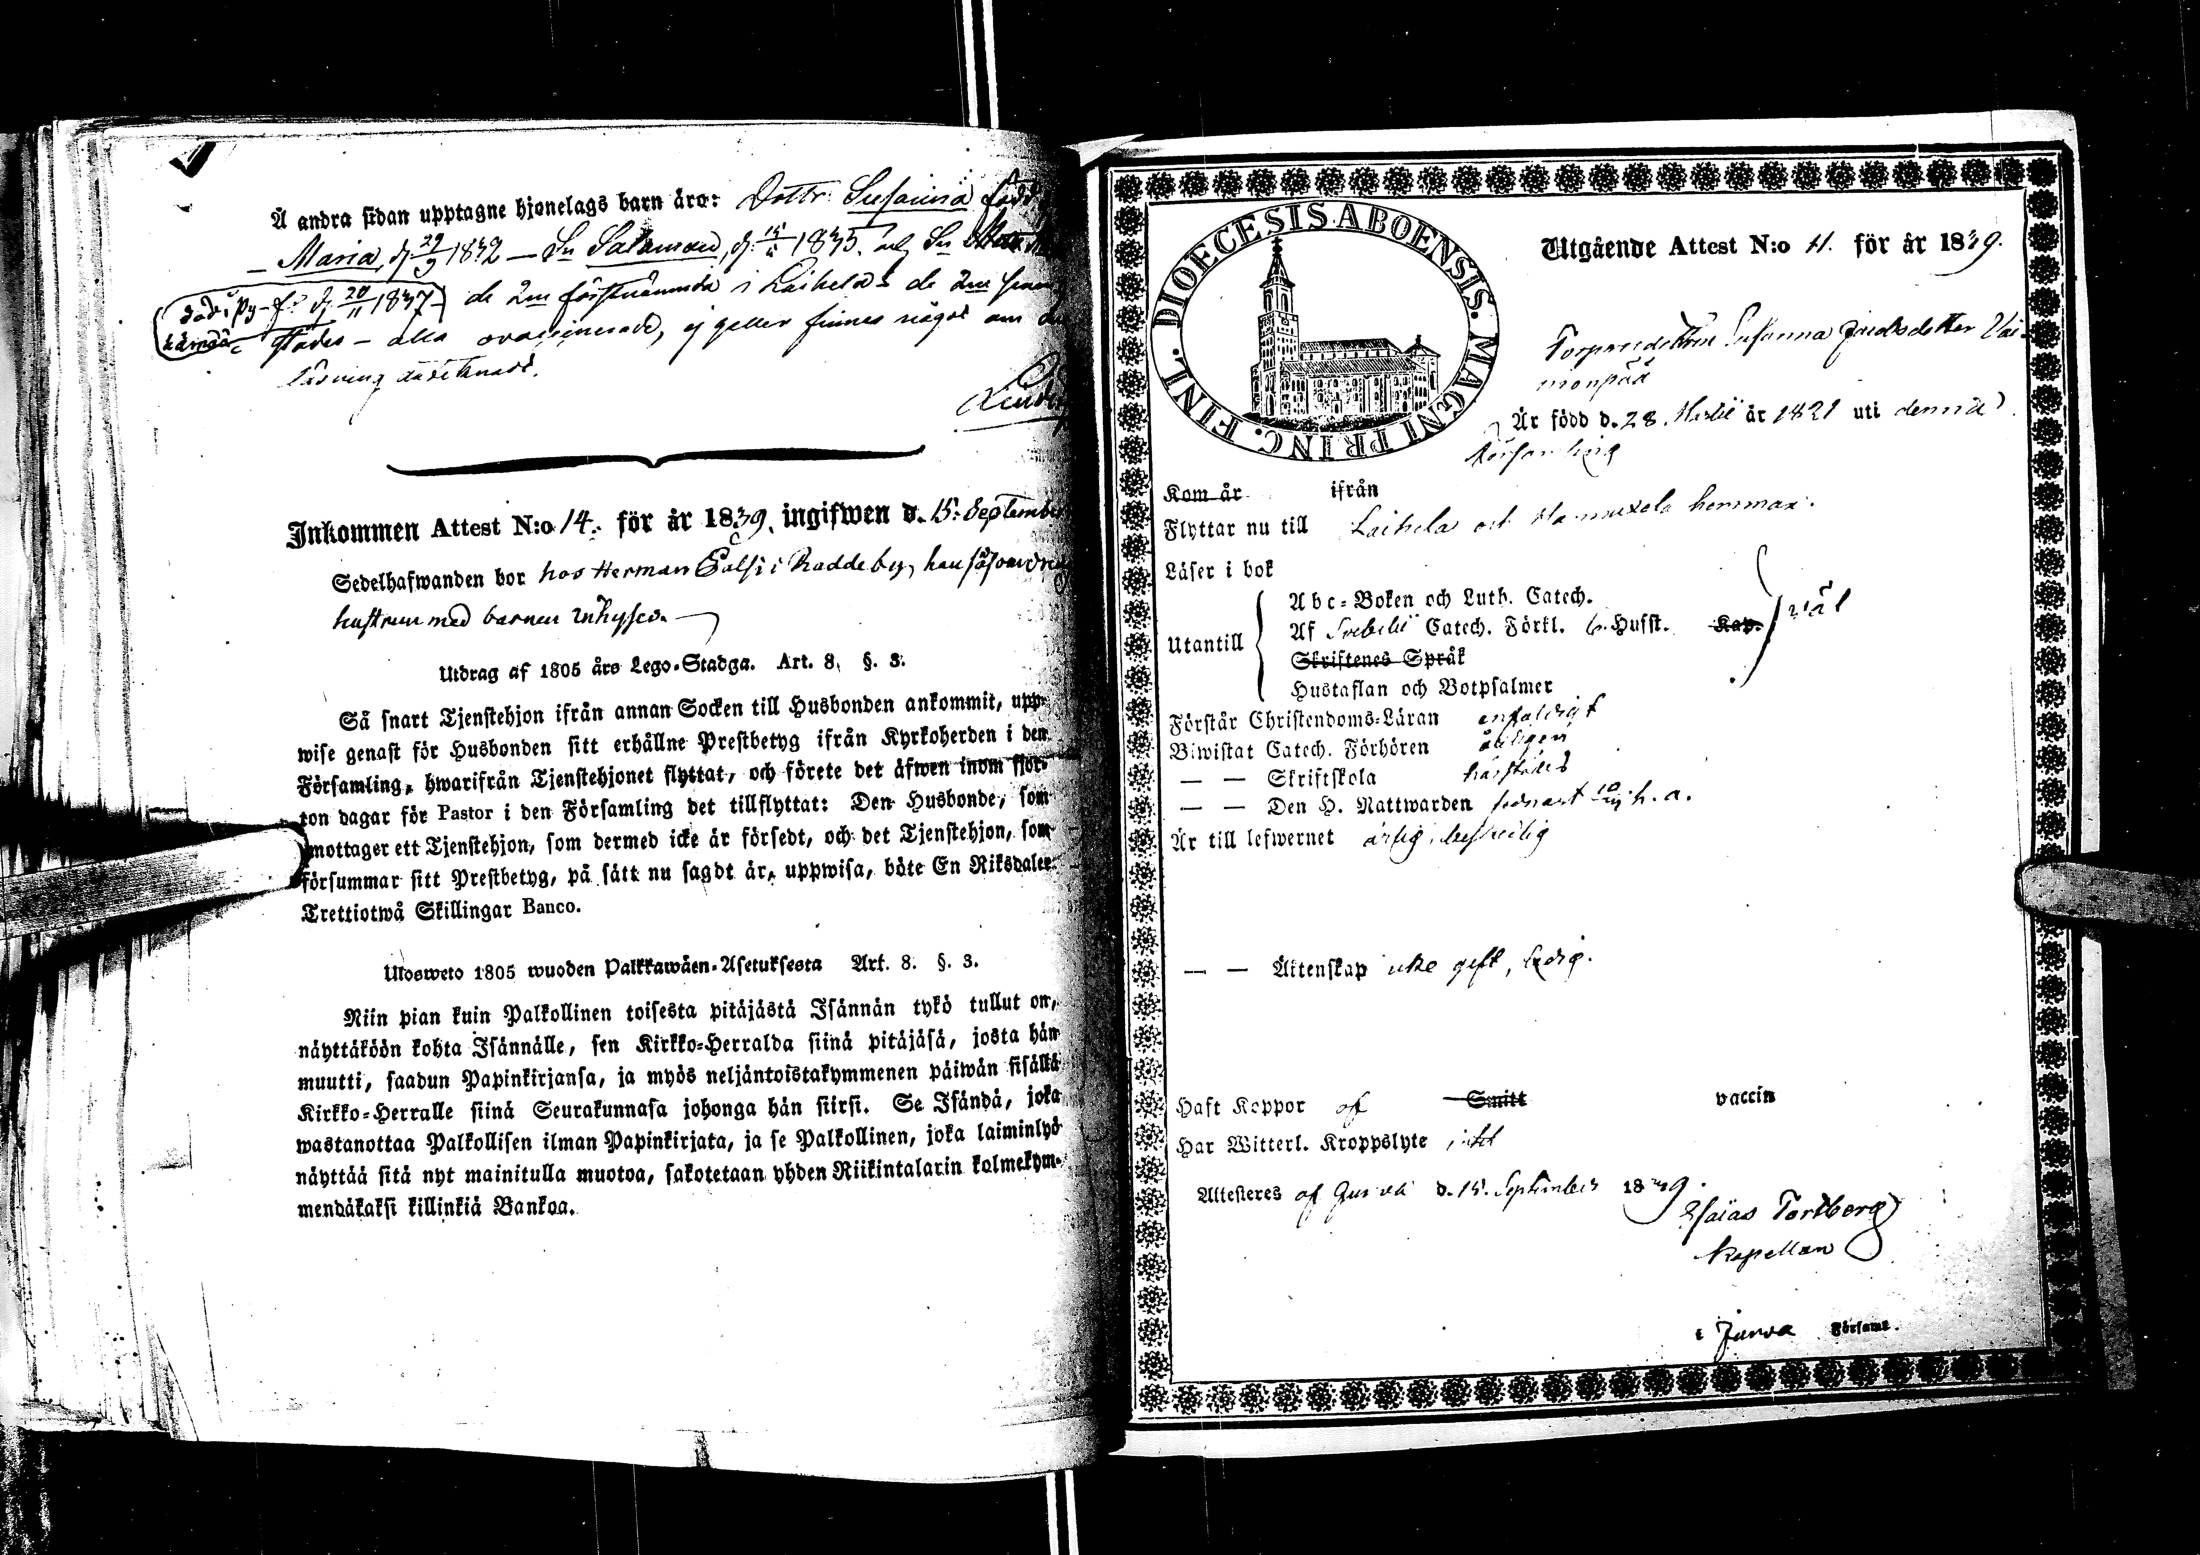 Å andra sidan upptagne hjonelags barn äro: Dottr. Susanna född
— Maria, d. 29/9 1832 — Sn Salomon, d. 1835. och Sn
död i Py- d. 20/11 1837 — de 2ne förstnämnda i Laihela & de 2ne
städes — alla ovaccinerade, ej heller finnes något om
läsning antecknadt.
Inkommen Attest N:o 14. för år 1839. ingifwen d. 15. September
Sedelhafwanden bor hos Herman i Radde by, han
hustrun med barnen Inhyses.
Utdrag af 1805 års Lego-Stadga. Art. 8. §. 3.
Så snart Tjenstehjon ifrån annan Socken till Husbonden ankommit, upp-
wise genast för Husbonden sitt erhållne Prestbetyg ifrån Kyrkoherden i den
Församling, hwarifrån Tjenstehjonet flyttat, och förete det äfwen inom fjor-
ton dagar för Pastor i den Församling det tillflyttat: Den Husbonde, som
mottager ett Tjenstehjon, som dermed icke är försedt, och det Tjenstehjon, som
försummar sitt Prestbetyg, på sätt nu sagdt är, uppwisa, böte En Riksdaler
Trettiotwå Skillingar Banco.
Ulosweto 1805 wuoden Palkkawäen-Asetuksesta Art. 8. §. 3.
Niin pian kuin Palkollinen toisesta pitäjästä Isännän tykö tullut on,
näyttäköön kohta Isännälle, sen Kirkko-Herralda siinä pitäjäsä, josta hän
muutti, saadun Papinkirjansa, ja myös neljäntoistakymmenen päiwän sisällä
Kirkko-Herralle siinä Seurakunnasa johonga hän siirsi. Se Isändä, joka
wastanottaa Palkollisen ilman Papinkirjata, ja se Palkollinen, joka laiminlyö
näyttää sitä nyt mainitulla muotoa, sakotetaan yhden Riikintalarin kolmekym-
mendäkaksi killinkiä Bankoa.
DIOECESIS ABOENSIS. MAGNI PRINC. FINL.
Utgående Attest N:o 11. för år 1839.
Torparedottren Susanna Jacobsdotter Vai-
monpää
Är född d. 28. Martii år 1821 uti denna
Församling
Kom år ifrån
Flyttar nu till Laihela och hemman.
Läser i bok
Utantill
Abc-Boken och Luth. Catech.
Af Svebelii Catech. Förkl. 6. Husst. Kap.
väl
Skriftenes Språk
Hustaflan och Botpsalmer
Förstår Christendoms-Läran enfaldigt
Biwistat Catech. Förhören årligen
— — Skriftskola härstädes
— — Den H. Nattwarden sednast h. a.
Är till lefwernet ärlig, beskedlig
— — Äktenskap icke gift, ledig.
Haft Koppor af Smitt vaccin
Har Witterl. Kroppslyte intet
Attesteres af Jurva d. 15. September 1839.
Esaias Fortberg
Kapellan
i Jurva Församl.